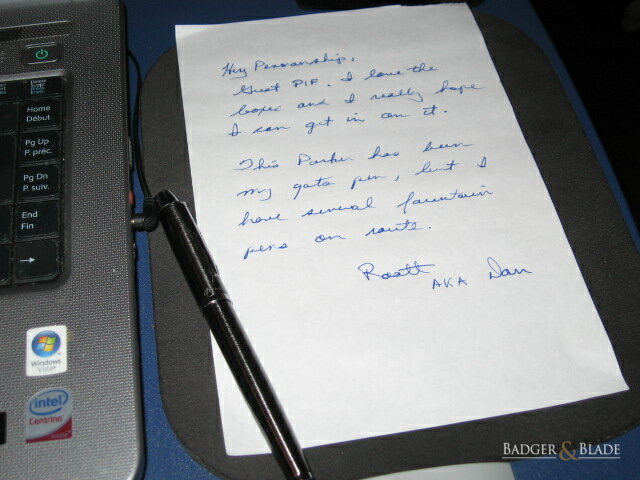 Hey Penmanship,
Great PIF. I love the
boxes and I really hope
I can get in on it.
This Parker has been
my goto pen, but I
have several fountain
pens on route.
Roott
AKA Dan
Delete
Home
Début
Pg Up
P. préc.
Pg Dn
P. suiv.
End
Fin
→
Windows
Vista
intel
Centrino
BADGER & BLADE